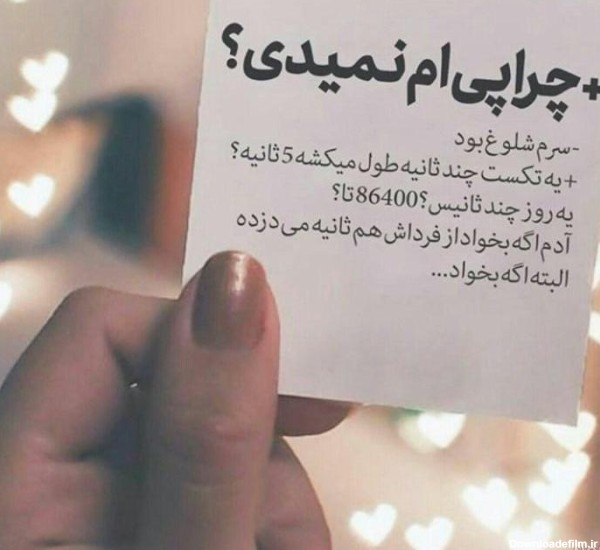 +چرا پی ام نمیدی؟
-سرم شلوغ بود
+یه تکست چند ثانیه طول میکشه 5 ثانیه؟
یه روز چند ثانیس؟ 86400 تا؟
آدم اگه بخواد از فرداش هم ثانیه می دزده
البته اگه بخواد...